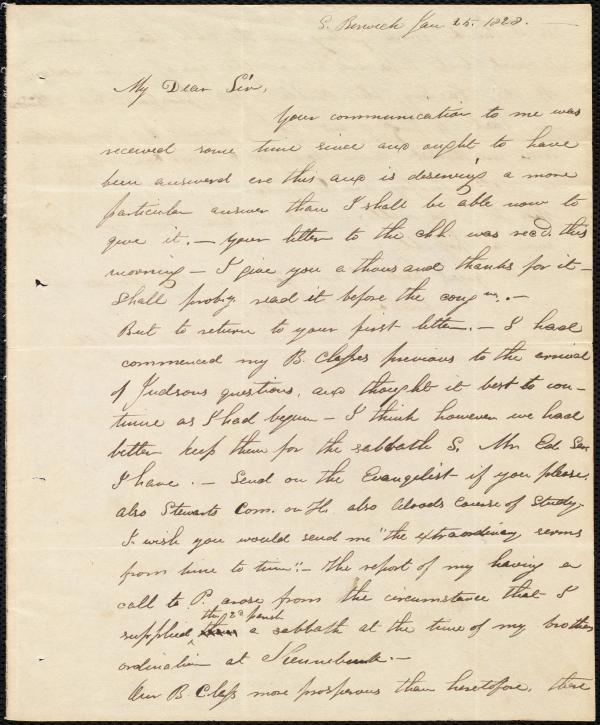 S. Berwick Jan 25. 1828.
My Dear Sir,
Your communication to me was
received some time since and ought to have
been answered ere this and is deserving a more
particular answer than I shall be able now to
give it. — Your letter to the chh. was recd. this
morning — I give you a thousand thanks for it —
shall probly. read it before the congn. —
But to return to your first letter. — I had
commenced my B. Classes previous to the arrival
of Judsons questions, and thought it best to con-
tinue as I had begun — I think however we had
better keep them for the sabbath S. Mr. Ed
I have. — Send on the Evangelist if you please,
also Stewarts Com. on H. also Woods Course of Study.
I wish you would send me "the extraordinary
from time to time". — The report of my having a
call to P. arose from the circumstance that I
the 2d parish
supplied a sabbath at the time of my brothers
ordination at Kennebunk. —
Our B. Class more prosperous than heretofore, there